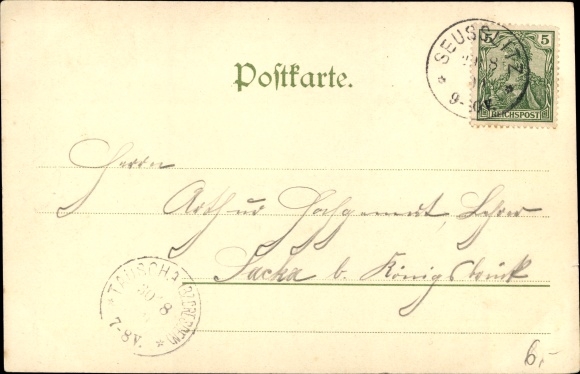 Postkarte.
SEUSSLITZ
9-10V.
5
REICHSPOST
Herrn
Arthur Hochgemut, Lehrer
Sacka b. Königsbrück
TAUSCHA (BZ. DRESDEN)
30 8
7-8V.
6,-